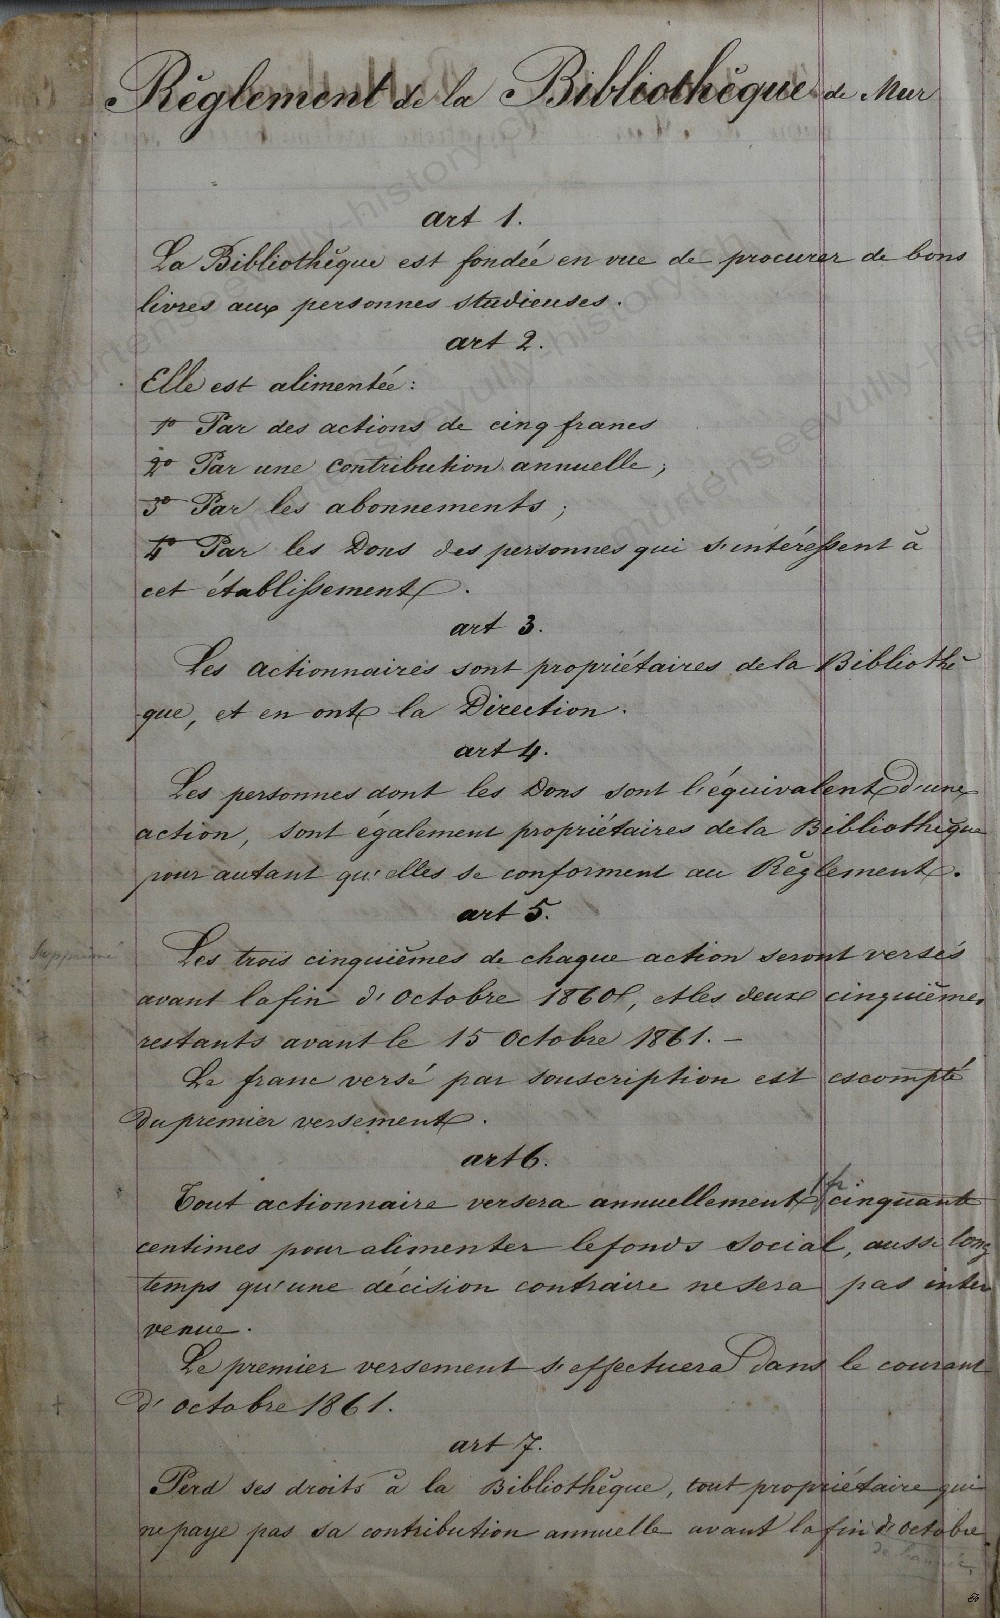 Règlement de la Bibliothèque de Mur
art 1.
La Bibliothèque est fondée en vue de procurer de bons
livres aux personnes studieuses.
art 2.
Elle est alimentée :
1° Par des actions de cinq francs
2° Par une contribution annuelle ;
3° Par les abonnements ;
4° Par les Dons des personnes qui s'intéressent à
cet établissement.
art 3.
Les actionnaires sont propriétaires de la Bibliothè
que, et en ont la Direction.
art 4.
Les personnes dont les Dons sont l'équivalent d'une
action, sont également propriétaires de la Bibliothèque
pour autant qu'elles se conforment au Règlement.
art 5.
Supprimé
Les trois cinquièmes de chaque action seront versés
avant la fin d'Octobre 1860, et les deux cinquièmes
restants avant le 15 Octobre 1861. –
Le franc versé par souscription est escompté
du premier versement.
art 6.
1 fr.
Tout actionnaire versera annuellement cinquante
centimes pour alimenter le fonds social, aussi long
temps qu'une décision contraire ne sera pas inter
venue.
Le premier versement s'effectuera dans le courant
d'octobre 1861.
+
art 7.
Perd ses droits à la Bibliothèque, tout propriétaire qui
ne paye pas sa contribution annuelle avant la fin d'octobre
de l'année.
murtenseevully-history.ch
murtenseevully-history.ch